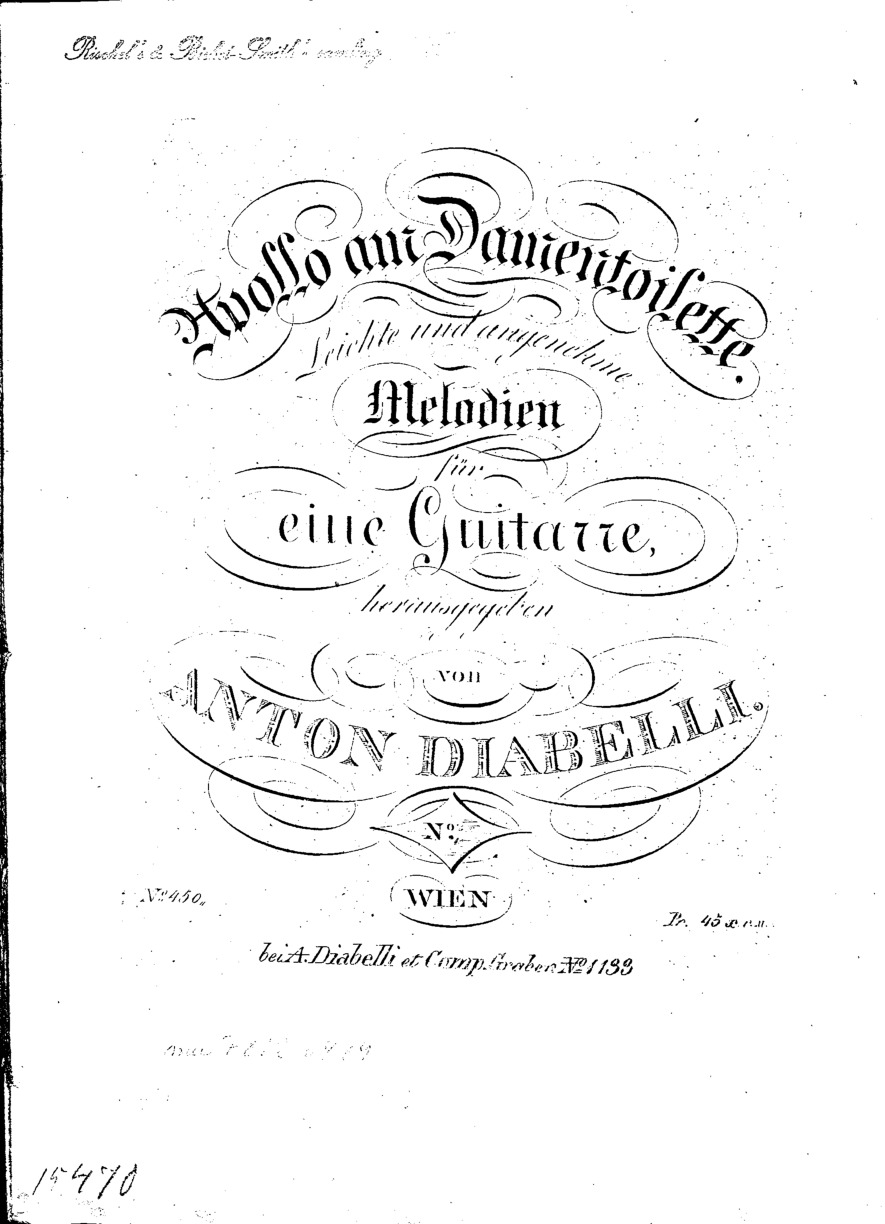 Rischel's & Birket-Smith's samling
Apollo am Damentoilette.
Leichte und angenehme
Melodien
für
eine Guitarre,
herausgegeben
von
ANTON DIABELLI.
No.
WIEN
No 450.
Pr. 45 x C.M.
bei A. Diabelli et Comp. Graben No 1133
15470